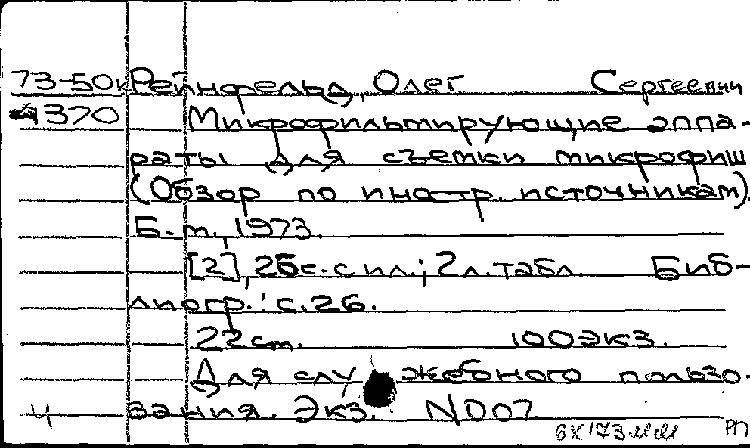 73-50к Рейнфельд, Олег Сергеевич
4370 Микрофильмирующие аппа-
раты для съемки микрофиш
(Обзор по иностр. источникам).
Б. м., 1973.
[2], 26с. с ил.; 2 л. табл. Биб-
лиогр.: с. 26.
22 см. 100 экз.
Для служебного пользо-
4 вания. Экз. N007